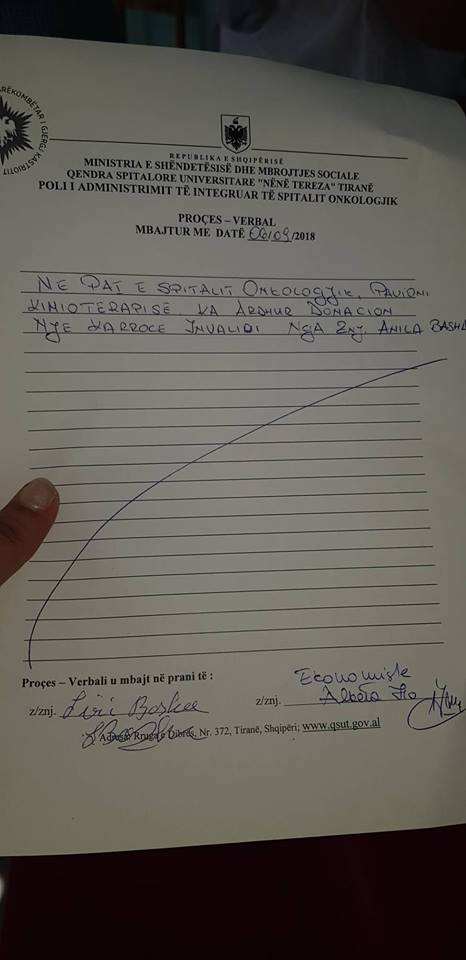 REPUBLIKA E SHQIPËRISË
MINISTRIA E SHËNDETËSISË DHE MBROJTJES SOCIALE
QENDRA SPITALORE UNIVERSITARE "NËNË TEREZA" TIRANË
POLI I ADMINISTRIMIT TË INTEGRUAR TË SPITALIT ONKOLOGJIK
PROÇES – VERBAL
MBAJTUR ME DATË 06/09/2018
NE PAT E SPITALIT ONKOLOGJIK, PAVIONI
KIMIOTERAPISE KA ARDHUR DONACION
NJE KARROCE INVALIDI NGA ZNJ. ANILA BASHA
Proçes – Verbali u mbajt në prani të :
Economiste
z/znj. Liri z/znj. Albera
Adresa: Rruga e Dibrës, Nr. 372, Tiranë, Shqipëri; www.qsut.gov.al